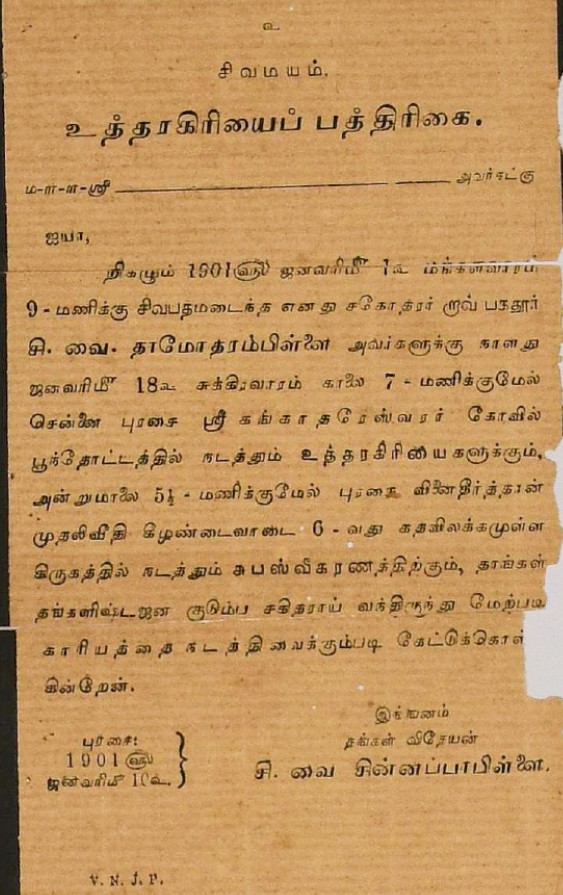 உ
சிவமயம்.
உத்தரகிரியைப் பத்திரிகை.
ம-ா-ள-ஸ்ரீ அவர்கட்கு
ஐயா,
நிகழும் 1901௵ ஜனவரி௴ 1உ மங்களவாரம்
9-மணிக்கு சிவபதமடைந்த எனது சகோதரர் றாவ் பகதூர்
சி. வை. தாமோதரம்பிள்ளை அவர்களுக்கு நாளது
ஜனவரி௴ 18உ சுக்கிரவாரம் காலை 7-மணிக்குமேல்
சென்னை புரசை ஸ்ரீ கங்காதரேஸ்வரர் கோவில்
பூந்தோட்டத்தில் நடத்தும் உத்தரகிரியைகளுக்கும்,
அன்றுமாலை 5½-மணிக்குமேல் புரசை வினைதீர்த்தான்
முதலிவீதி கீழண்டைவாடை 6-வது கதவிலக்கமுள்ள
கிருகத்தில் நடத்தும் சுபஸ்வீகரணத்திற்கும், தாங்கள்
தங்களிஷ்டஜன குடும்ப சகிதராய் வந்திருந்து மேற்படி
காரியத்தை நடத்திவைக்கும்படி கேட்டுக்கொள்
கின்றேன்.
இங்ஙனம்
தங்கள் விதேயன்
சி. வை சின்னப்பாபிள்ளை.
புரசை:
1901௵
ஜனவரி௴ 10உ
V. N. J. P.